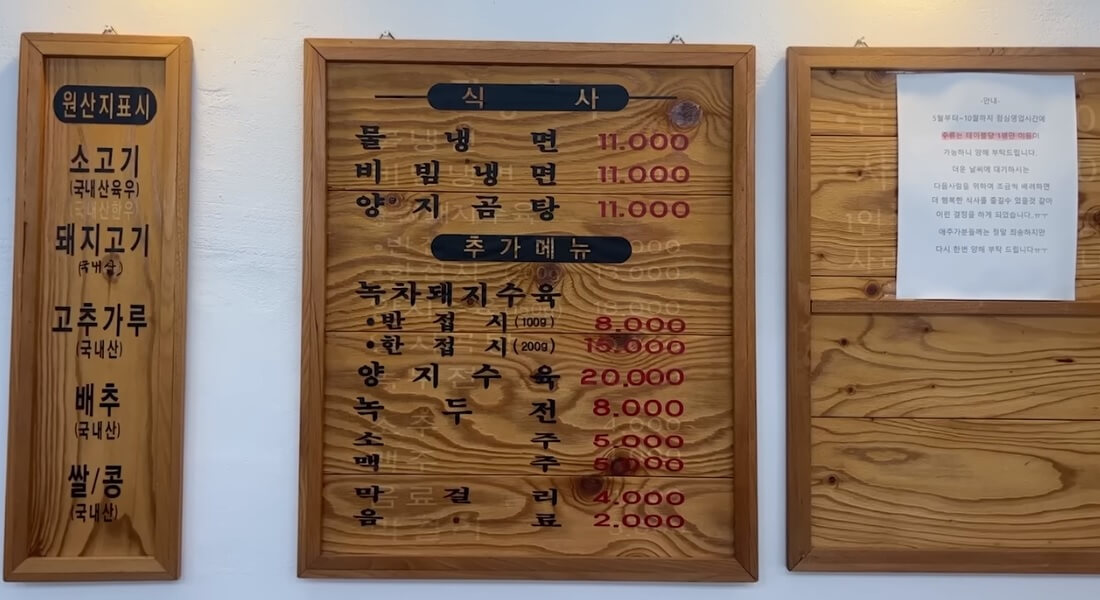 원산지표시
소고기
(국내산육우)
돼지고기
(국내산)
고추가루
(국내산)
배추
(국내산)
쌀/콩
(국내산)
식 사
물 냉 면 11.000
비 빔 냉 면 11.000
양 지 곰 탕 11.000
추 가 메 뉴
녹차돼지수육
•반 접 시(100g) 8.000
•한 접 시(200g) 15.000
양 지 수 육 20.000
녹 두 전 8.000
소 주 5.000
맥 주 5.000
막 걸 리 4.000
음 료 2.000
-안내-
5월부터~10월까지 점심영업시간에
주류는 테이블당 1병만 이용이
가능하니 양해 부탁드립니다.
더운 날씨에 대기하시는
다음사람을 위하여 조금씩 배려하면
더 행복한 식사를 즐길수 있을것 같아
이런 결정을 하게 되었습니다.ㅠㅜ
애주가분들께는 정말 죄송하지만
다시 한번 양해 부탁 드립니다ㅠㅜ